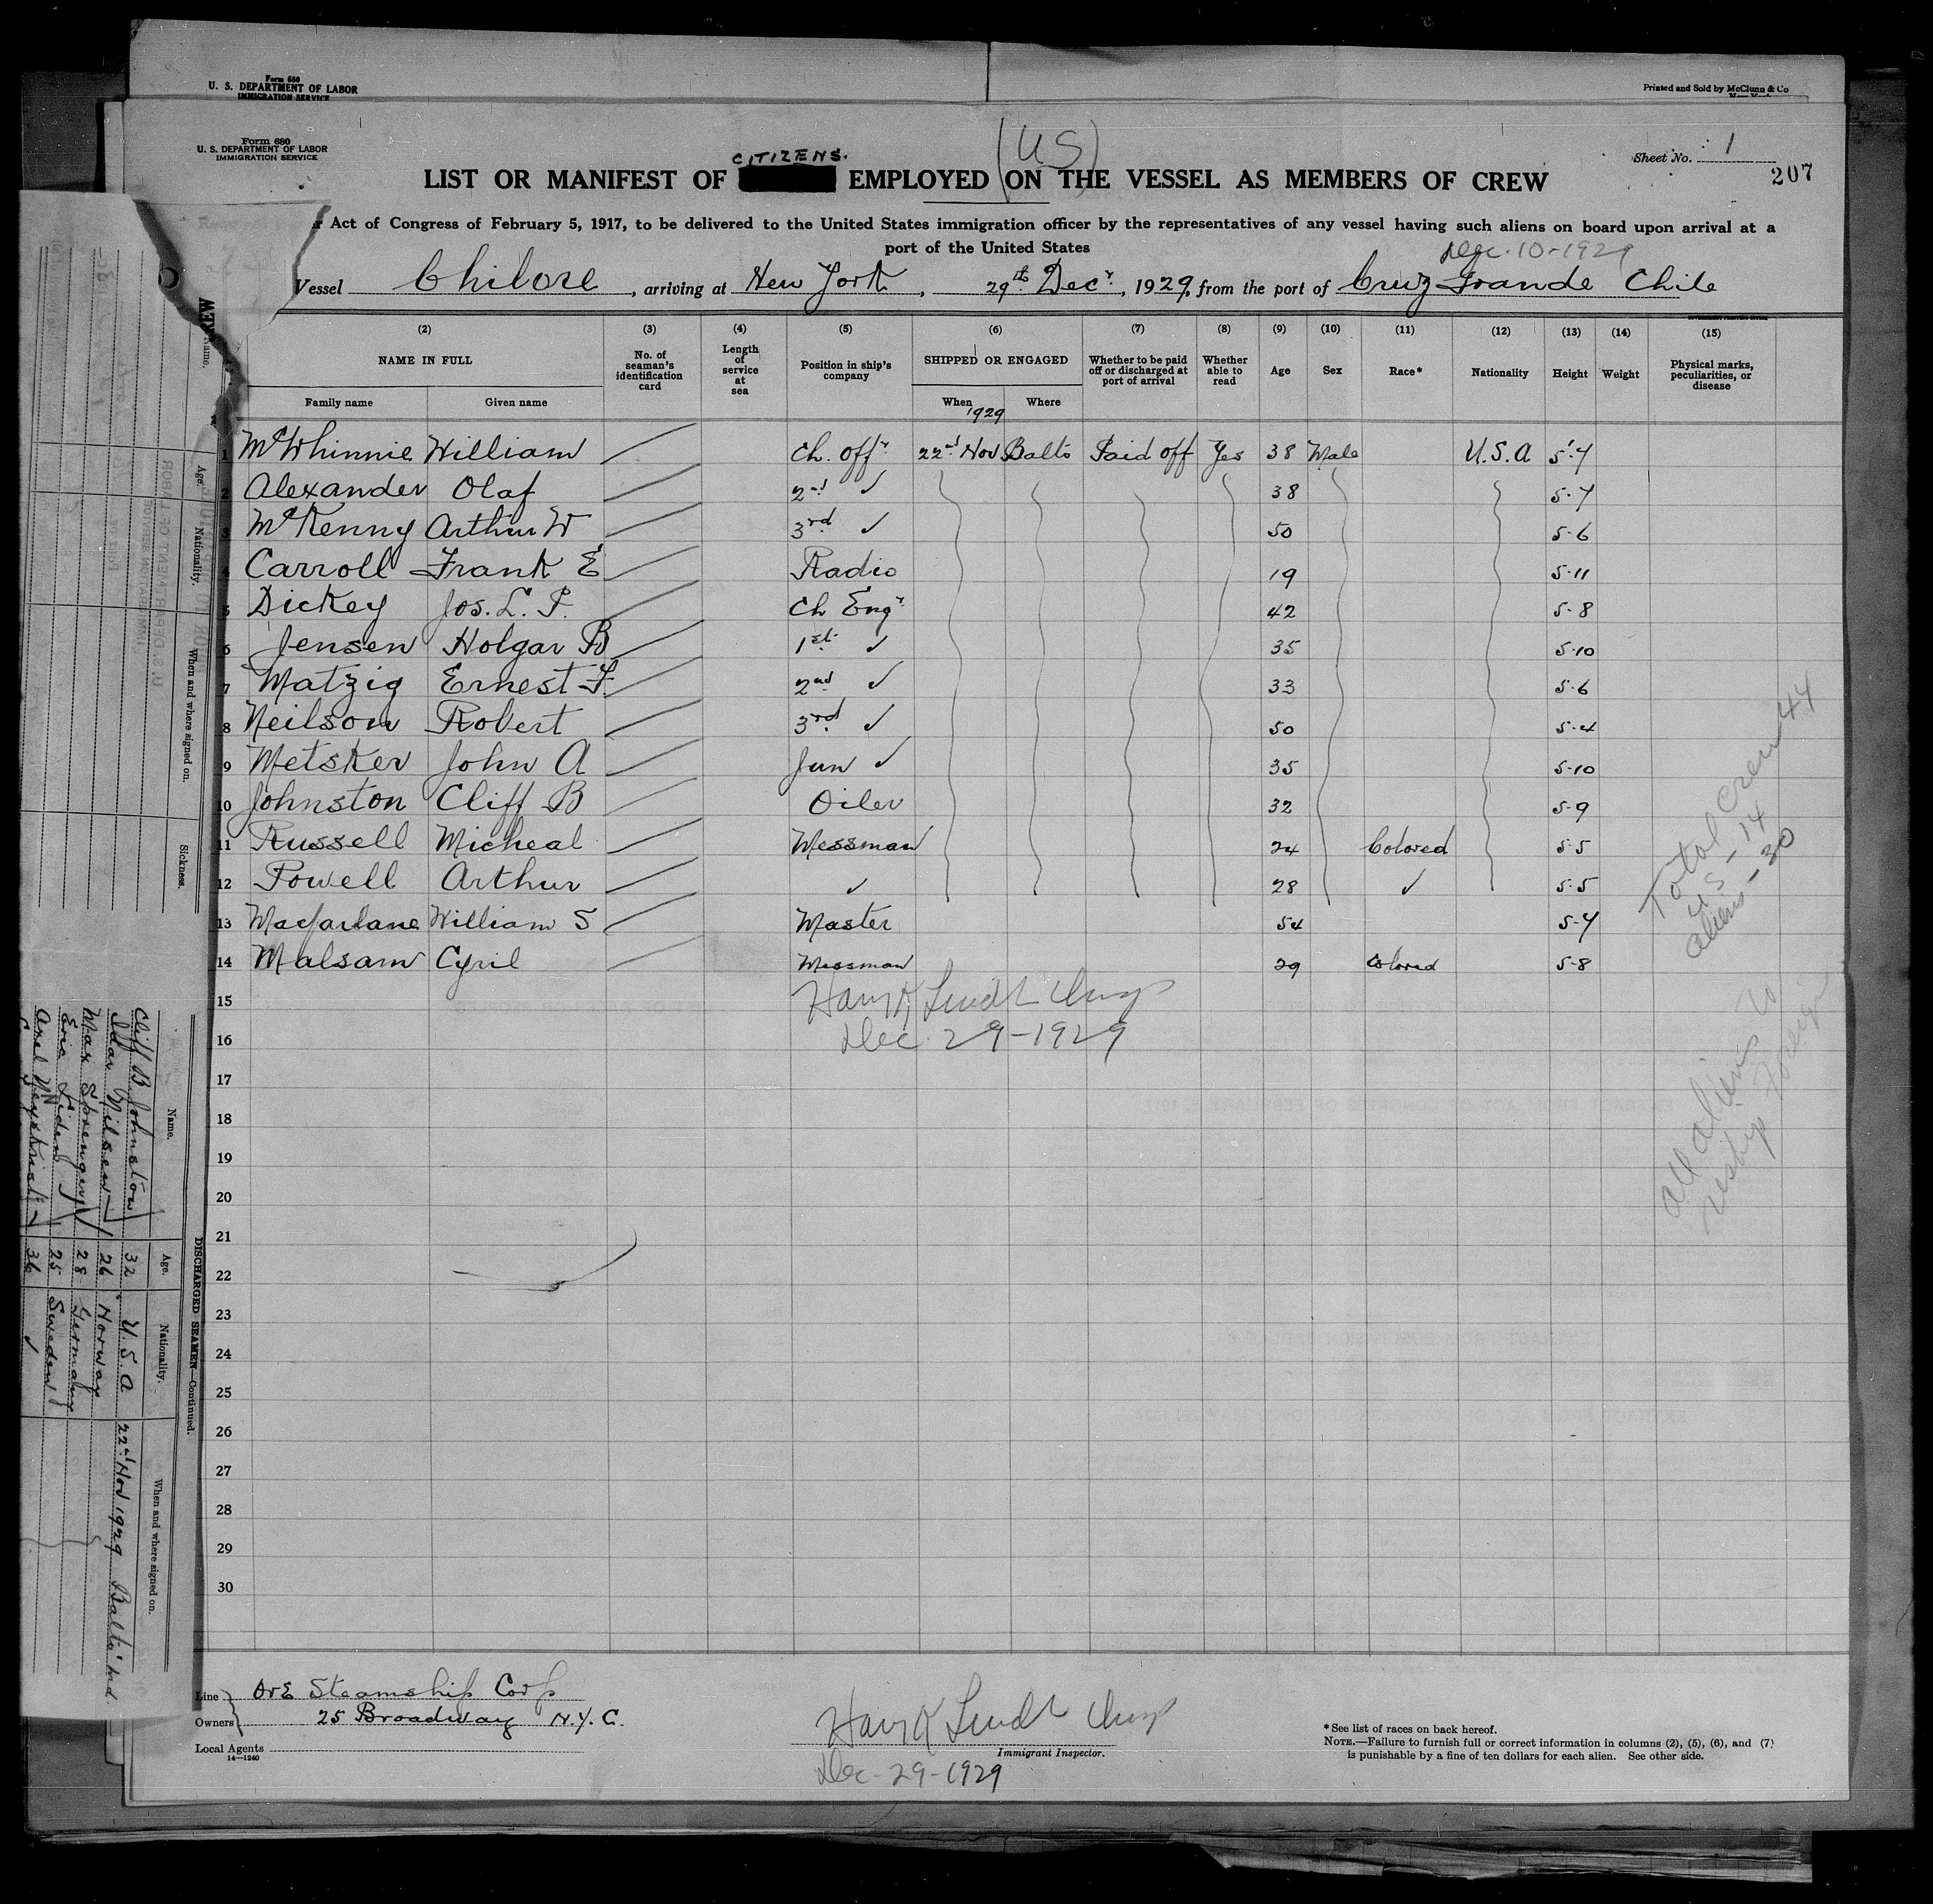 Form 680
U. S. DEPARTMENT OF LABOR
IMMIGRATION SERVICE
Printed and Sold by McClunn & Co
New York
Form 680
U. S. DEPARTMENT OF LABOR
IMMIGRATION SERVICE
(US)
Sheet No. 1
207
CITIZENS.
LIST OR MANIFEST OF EMPLOYED ON THE VESSEL AS MEMBERS OF CREW
Act of Congress of February 5, 1917, to be delivered to the United States immigration officer by the representatives of any vessel having such aliens on board upon arrival at a
port of the United States
Dec. 10-1929
Vessel Chilore, arriving at New York, 29th Decr, 1929, from the port of Cruz Grande Chile
(2) (3) (4) (5) (6) (7) (8) (9) (10) (11) (12) (13) (14) (15)
NAME IN FULL No. of seaman's identification card Length of service at sea Position in ship's company SHIPPED OR ENGAGED Whether to be paid off or discharged at port of arrival Whether able to read Age Sex Race* Nationality Height Weight Physical marks, peculiarities, or disease
Family name Given name When 1929 Where
1 McWhinnie William Ch. Offr 22nd Nov Balto Paid off Yes 38 Male U.S.A 5'.7
2 Alexander Olaf 2nd ✓ 38 5-7
3 McKenny Arthur W 3rd ✓ 50 5-6
4 Carroll Frank E Radio 19 5-11
5 Dickey Jos. L. P. Ch Engr 42 5-8
6 Jensen Holgar B 1st ✓ 35 5-10
7 Matzig Ernest F. 2nd ✓ 33 5-6
8 Neilson Robert 3rd ✓ 50 5-4
9 Metsker John A Jun ✓ 35 5-10
10 Johnston Cliff B Oiler 32 5-9
11 Russell Micheal Messman 24 Colored 5-5
12 Powell Arthur ✓ 28 ✓ 5-5
13 Macfarlane William S Master 54 5-7
14 Malsam Cyril Messman 29 Colored 5-8
15
16 Dec 29-1929
17
18
19
20
21
22
23
24
25
26
27
28
29
30
Total Crew 44
US - 14
aliens - 30
all aliens to
reship foreign
Line Ore Steamship Corp
Owners 25 Broadway N.Y.C.
Local Agents
14-1240
Immigrant Inspector.
Dec-29-1929
*See list of races on back hereof.
NOTE.—Failure to furnish full or correct information in columns (2), (5), (6), and (7)
is punishable by a fine of ten dollars for each alien. See other side.
Name. Age. Nationality. When and where signed on. Sickness.
DISCHARGED SEAMEN—Continued.
Name. Age. Nationality. When and where signed on.
Cliff B Johnston 32 U.S.A 22nd Nov 1929 Balto Md.
Nilsen 26 Norway
Max Sprenger 28 Germany
Eric Liden 25 Sweden
Axel 36 ✓